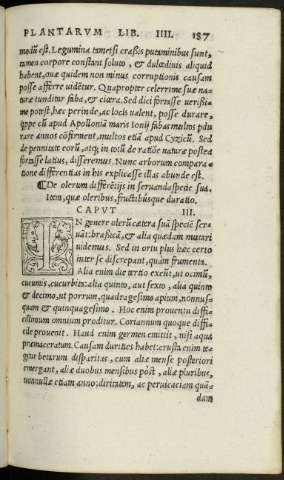 PLANTARVM LIB. IIII. 187
mediũ est. Legumina tametsi crassis putaminibus sunt,
tamen corpore constant soluto, & dulcedinis aliquid
habent, quæ quidem non minus corruptionis causam
posse afferre uidetur. Quapropter celerrime suæ na-
turæ tunditur faba, & cicera. Sed dici fortasse uerissi-
me potest, hæc perinde, ac locis ualent, posse durare,
ippe cũ apud Apolloniã maris Ionij fabas multos pdu
rare ãnos cõfirment, multos etiã apud Cyzicũ. Sed
de pennitate eorũ, atq; in totũ de ratiõe naturæ postea
fortasse latius, disseremus. Nunc arborum compara-
tione differentias in his explicasse illas abunde est.
De olerum differẽtijs in seruanda specie sua.
Item, quæ oleribus, fructibusque duratio.
CAPVT III.
IN genere olerũ cætera suã specie ser-
uãt: brasicã, & alia quædam mutari
uidemus. Sed in ortu plus hæc certo
inter se discrepant, quàm frumenta.
Alia enim die tertio exeũt, ut ocimũ,
cucumis, cucurbita: alia quinto, aut sexto, alia quinto
& decimo, ut porrum, quadragesimo apium, nonnusã
quam & quinquagesimo. Hoc enim prouentu diffi-
cillimum omnium proditur. Coriannum quoque diffi-
cile prouenit. Haud enim germen emittit, nisi aqua
præmaceratum. Causam durities habet: crusta enim te-
gitur betarum disparitas, cum aliæ mense posteriori
emergant, aliæ duobus mensibus pòst, aliæ pluribus,
nonnullæ etiam anno: diritatem, ac peruicaciam quã-
dam